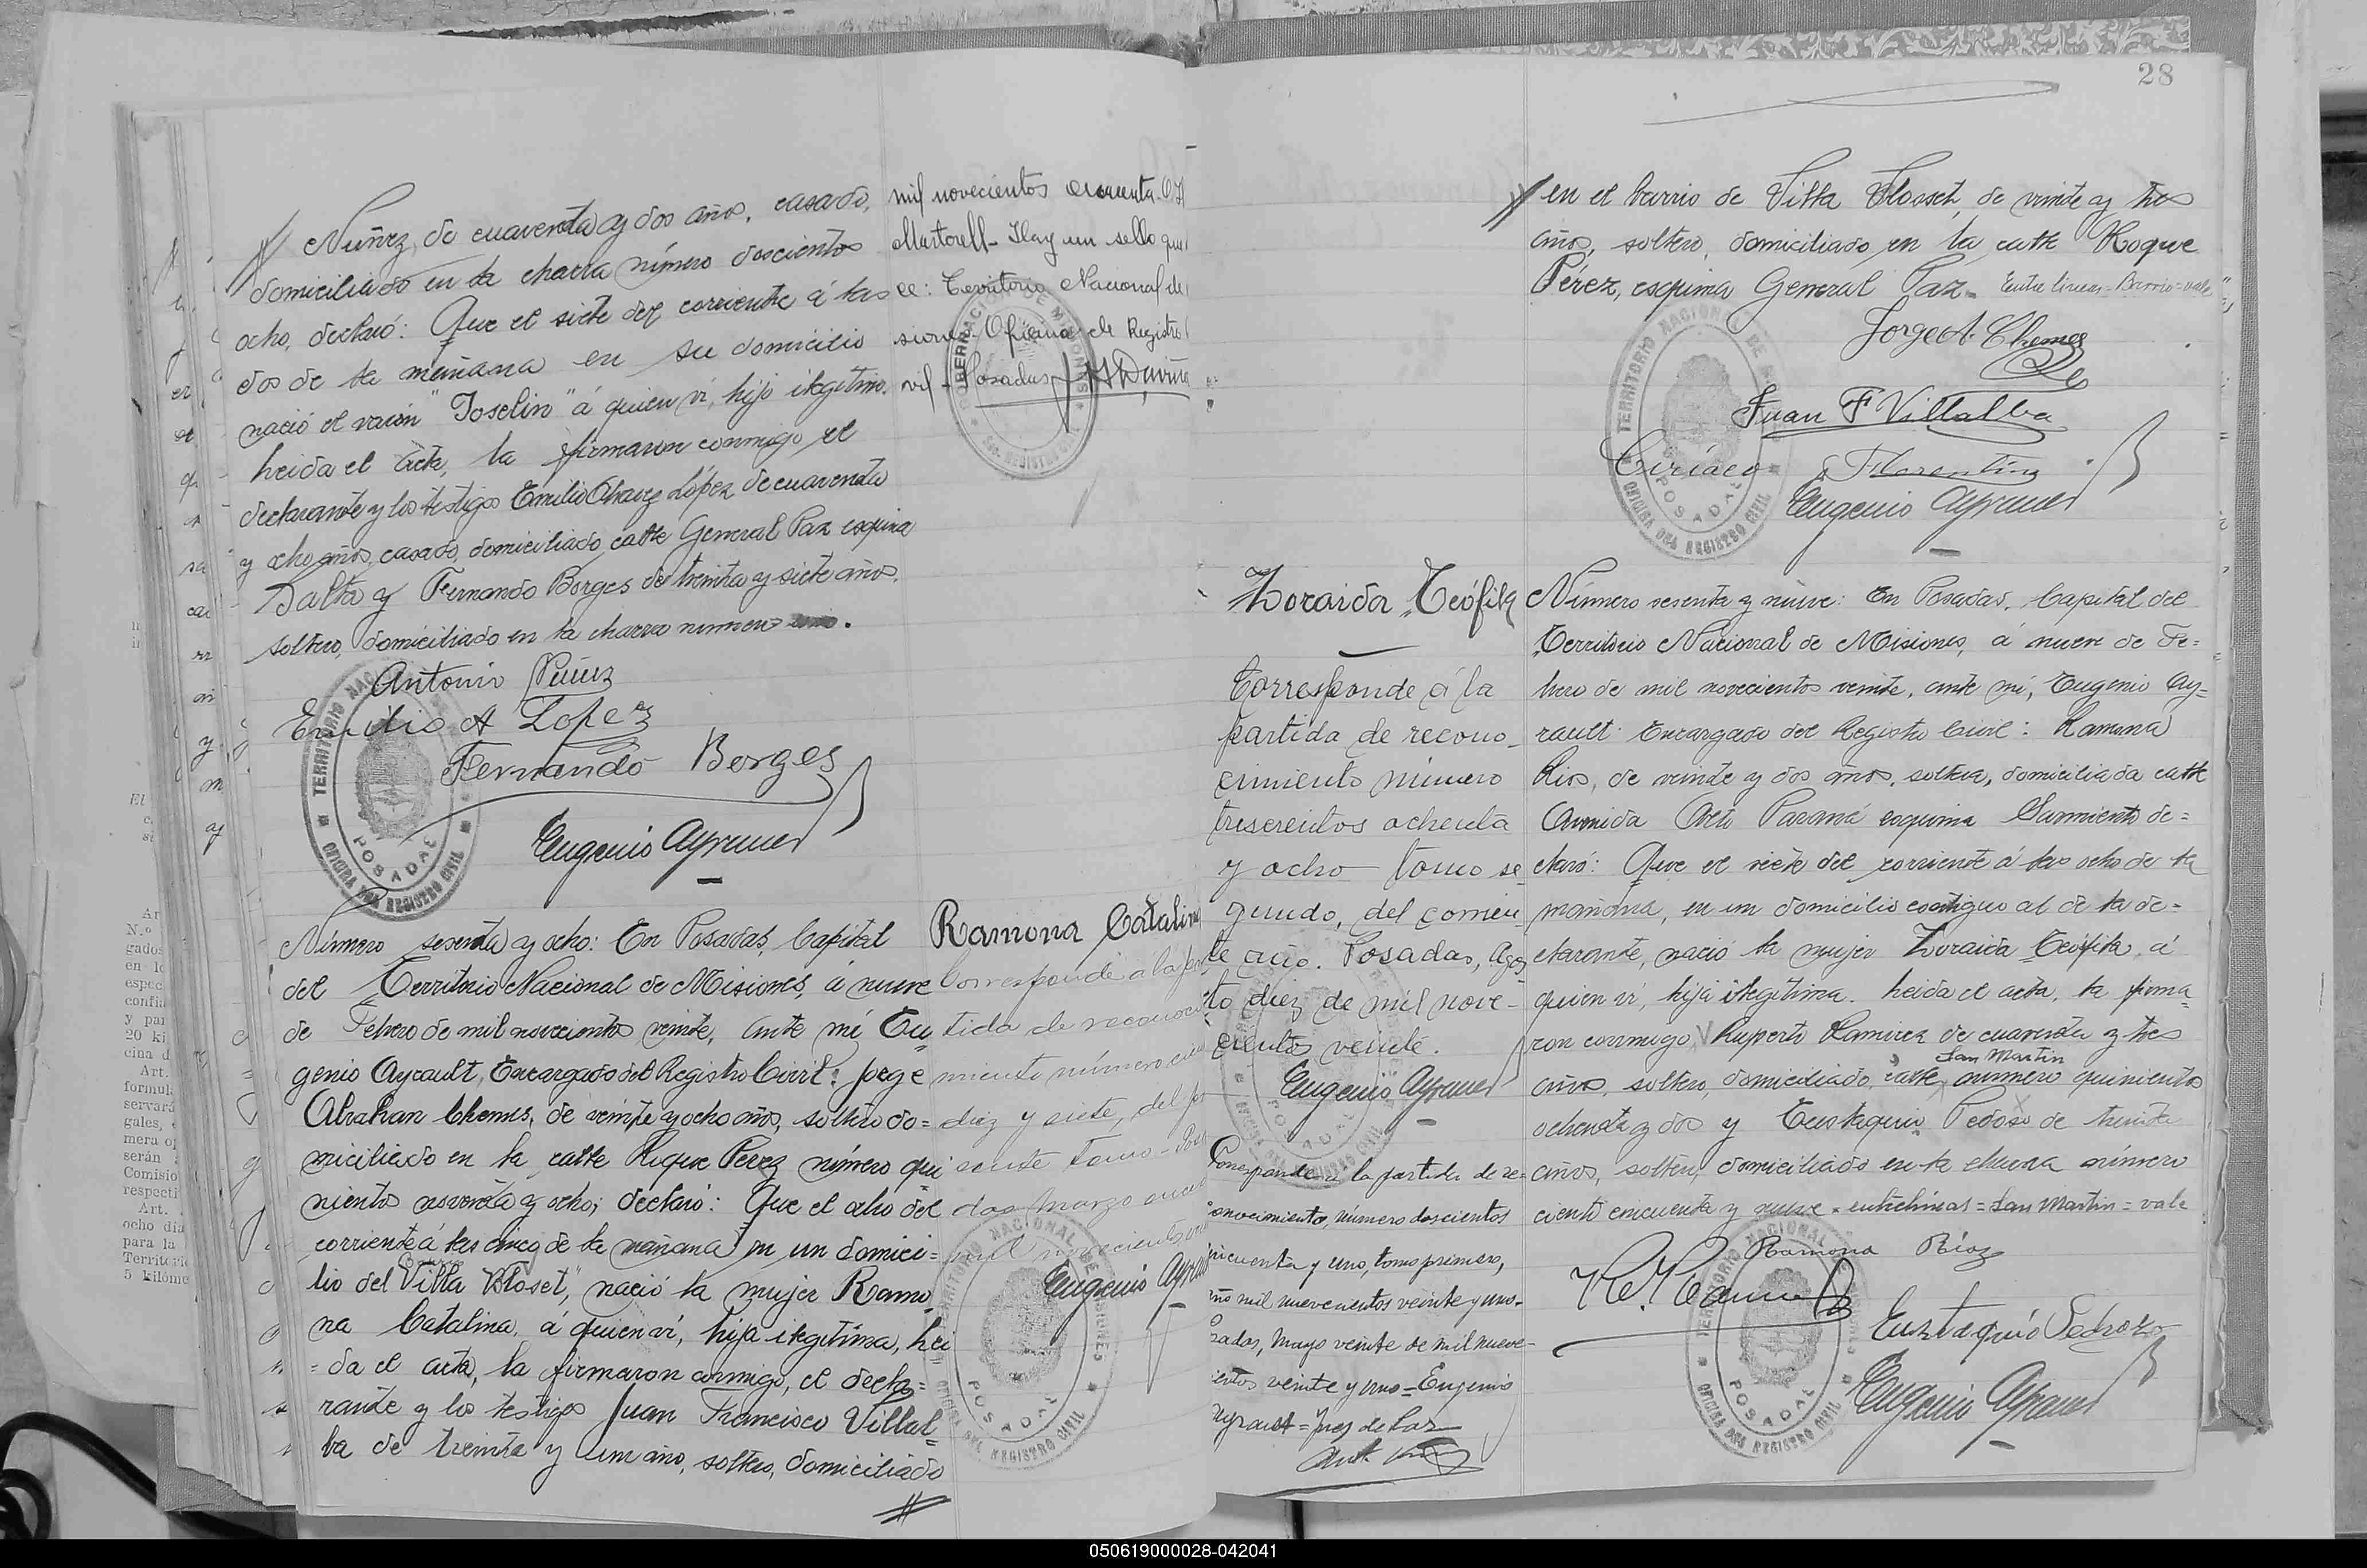 // Nuñez, de cuarenta y dos años, casado,
domiciliado en la chacra número doscientos
ocho, declaró: Que el siete del corriente á las
dos de la mañana en su domicilio
nació el varón "Joselin" á quien ví, hijo ilegítimo.
Leida el acta, la firmaron conmigo, el
declarante y los testigos Emilio Chavez López de cuarenta
y ocho años, casado, domiciliado, calle General Paz esquina
Salta y Fernando Borges de treinta y siete años,
soltero, domiciliado en la chacra número
Antonio Núñez
Emilio A Lopez
Fernando Borges
Eugenio Ayrault
mil novecientos cuarenta
Martorell - Hay un sello que
ce: Territorio Nacional de
siones Oficina de Registro
vil - Posadas
Ramona Catalina
Corresponde a la par
tida de reconoci
miento número
diez y siete, del pre
sente tomo - Posa
das, marzo
mil novecientos
Eugenio Ayrault
Número sesenta y ocho: En Posadas, Capital
del Territorio Nacional de Misiones, á nueve
de Febrero de mil novecientos veinte, ante mí Eu
genio Ayrault, Encargado del Registro Civil: Jorge
Abrahan Chemes, de veinte y ocho años, soltero do=
miciliado en la calle Roque Perez número qui
nientos noventa y ocho; declaró: Que el ocho del
corriente á las cinco de la mañana en un domici=
lio del Barrio "Villa Bloset", nació la mujer Ramo
na Catalina, á quien ví, hija ilegítima, Lei
=da el acta, la firmaron conmigo, el decla=
rante y los testigos Juan Francisco Villal=
ba de treinta y un año, soltero, domiciliado
//
28
// en el barrio de Villa Blosset, de veinte y tres
años, soltero, domiciliado en la calle Roque
Pérez, esquina General Paz - Entre lineas = Barrio = vale
Jorge A. Chemes
Juan F Villalba
Ciriaco Florentin
Eugenio Ayrault
Zoraida Teófila
Corresponde á la
partida de recono_
cimiento número
trescientos ochenta
y ocho tomo se_
gundo, del corrien
te año. Posadas, Agos
to diez de mil nove-
cientos veinte.
Eugenio Ayrault
Corresponde a la partida de re=
conocimiento, número doscientos
cincuenta y uno, tomo primero,
año mil nuevecientos veinte y uno -
Posadas, Mayo veinte de mil nueve-
cientos veinte y uno = Eugenio
Ayrault = Juez de Paz
Número sesenta y nueve: En Posadas, Capital del
Territorio Nacional de Misiones, á nueve de Fe=
brero de mil novecientos veinte, ante mí, Eugenio Ay=
rault: Encargado del Registro Civil: Ramona
Rios, de veinte y dos años, soltera, domiciliada calle
Avenida Alto Paraná esquina Sarmiento de=
claró: Que el siete del corriente á las ocho de la
mañana, en un domicilio contiguo al de la de=
clarante, nació la mujer Zoraida Teófila, á
quien ví, hija ilegítima. Leida el acta, la firma_
ron conmigo, Ruperto Ramirez de cuarenta y tres
San Martin
años, soltero, domiciliado, calle número quinientos
ochenta y dos y Eustaquio Pedoso de treinta
años, soltero, domiciliado en la chacra número
ciento cincuenta y nueve = entrelíneas = San Martin = vale
Ramona Rios
R. Ramirez
Eustaquio Pedrozo
Eugenio Ayrault
TERRITORIO NACIONAL DE MISIONES
POSADAS
OFICINA DEL REGISTRO CIVIL
050619000028-042041